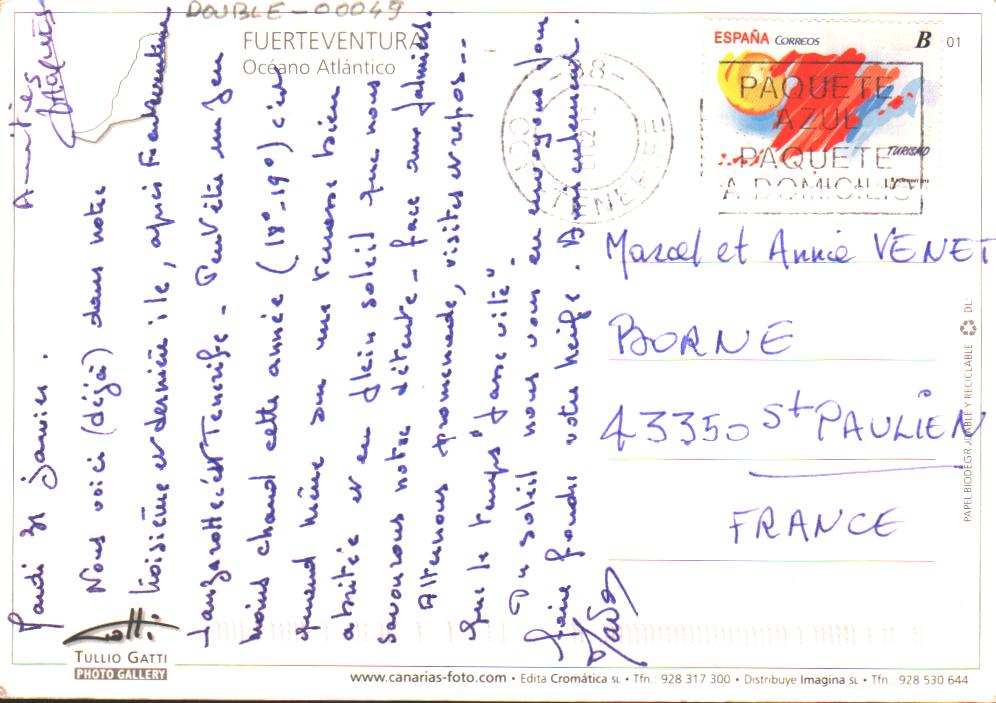 DOUBLE-00049
FUERTEVENTURA
Océano Atlántico
ESPAÑA CORREOS B
01
TURISMO
PAQUETE
AZUL
PAQUETE
A DOMICILIO
-38-
TENERIFE
Mardi 31 janvier.
Nous voici (déjà) dans notre
troisième et dernière île, après Fuerteventura
Lanzarotte c'est Tenerife. Peut-être un peu
moins chaud cette année (18°-19°) c'est
quand même sur une terrasse bien
abritée et en plein soleil que nous
savourons notre détente - face aux palmiers.
Alternons promenade, visites et repos...
que le temps "passe vite".
Du soleil nous vous en envoyons pour
faire fondre votre neige. Amicalement.
Amitiés
Marcel et Annie VENET
BORNE
43350 St PAULIEN
FRANCE
Gatti
TULLIO GATTI
PHOTO GALLERY
PAPEL BIODEGRADABLE Y RECICLABLE DL:
www.canarias-foto.com • Edita Cromática SL • Tfn.: 928 317 300 • Distribuye Imagina SL • Tfn.: 928 530 644